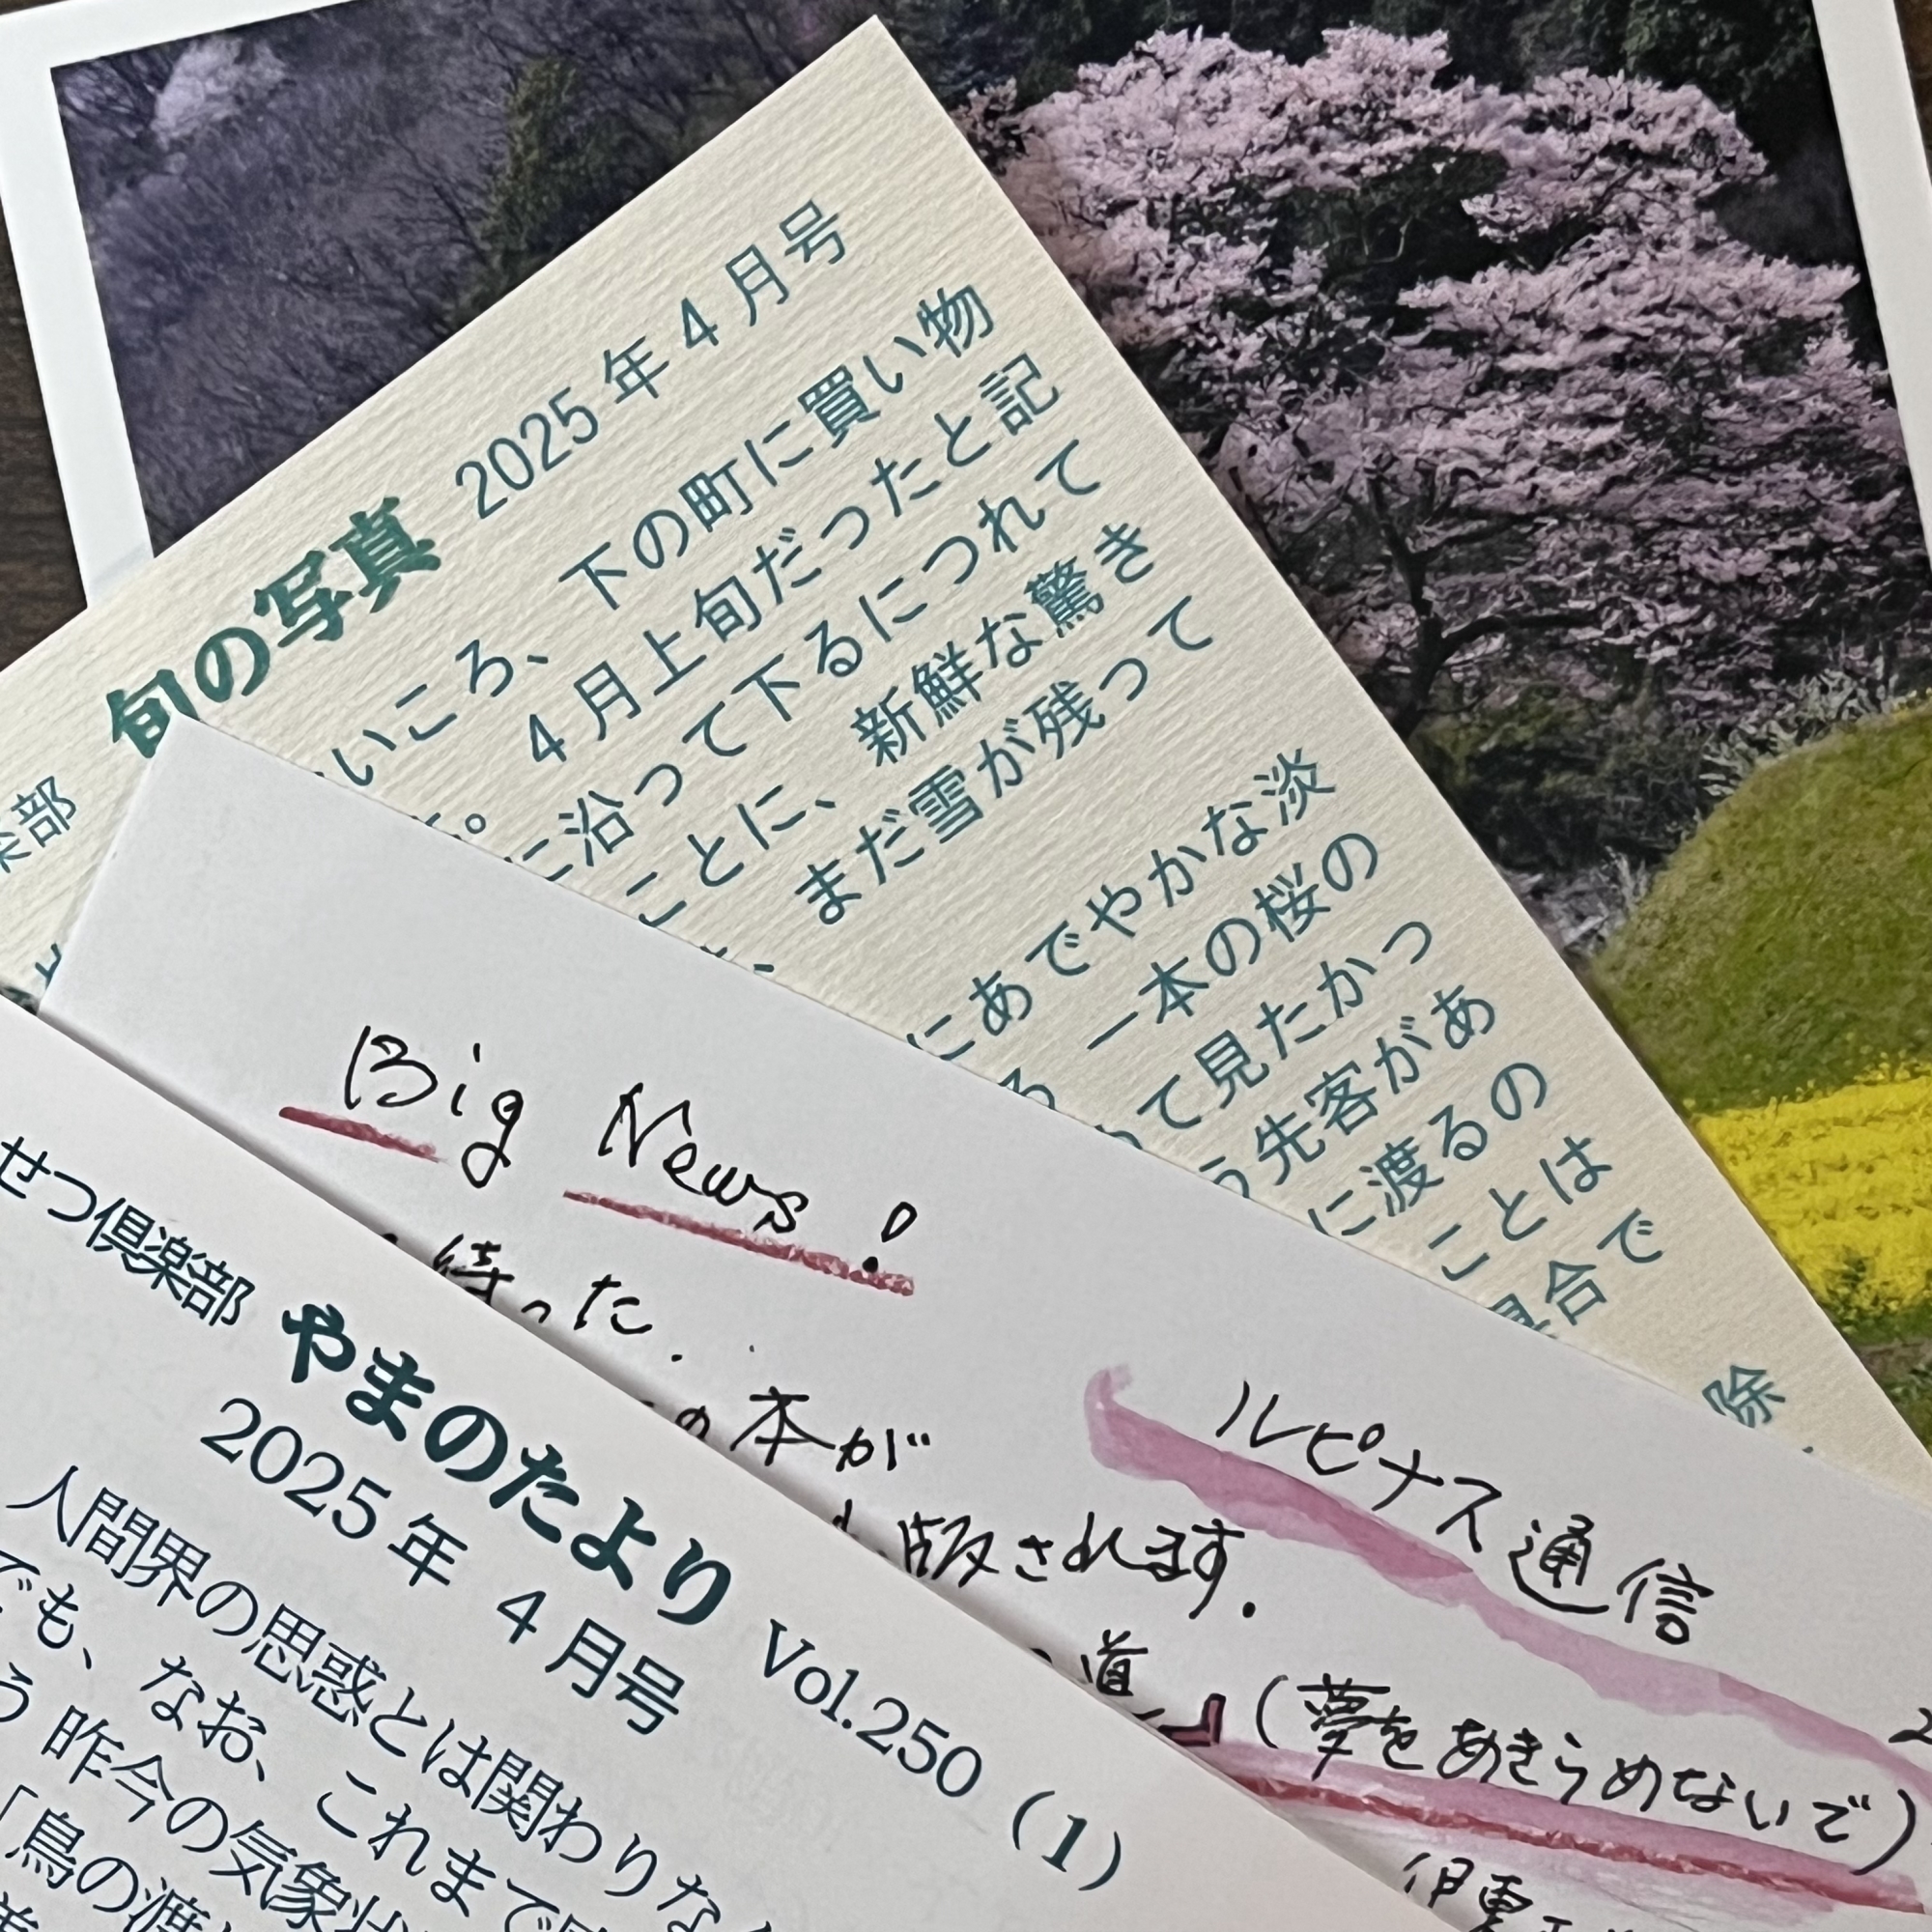 旬の写真 2025年4月号
いころ、下の町に買い物
4月上旬だったと記
に沿って下るにつれて
ことに、新鮮な驚き
まだ雪が残って
にあでやかな淡
一本の桜の
て見たかっ
う先客があ
に渡るの
ことは
具合で
除
楽部
Big News!
待った.
の本が
版されます.
道』(夢をあきらめないで)
ルピナス通信
せつ倶楽部 やまのたより Vol.250 (1)
2025年 4月号
人間界の思惑とは関わりな
でも、なお、これまで
う 昨今の気象状
「鳥の渡